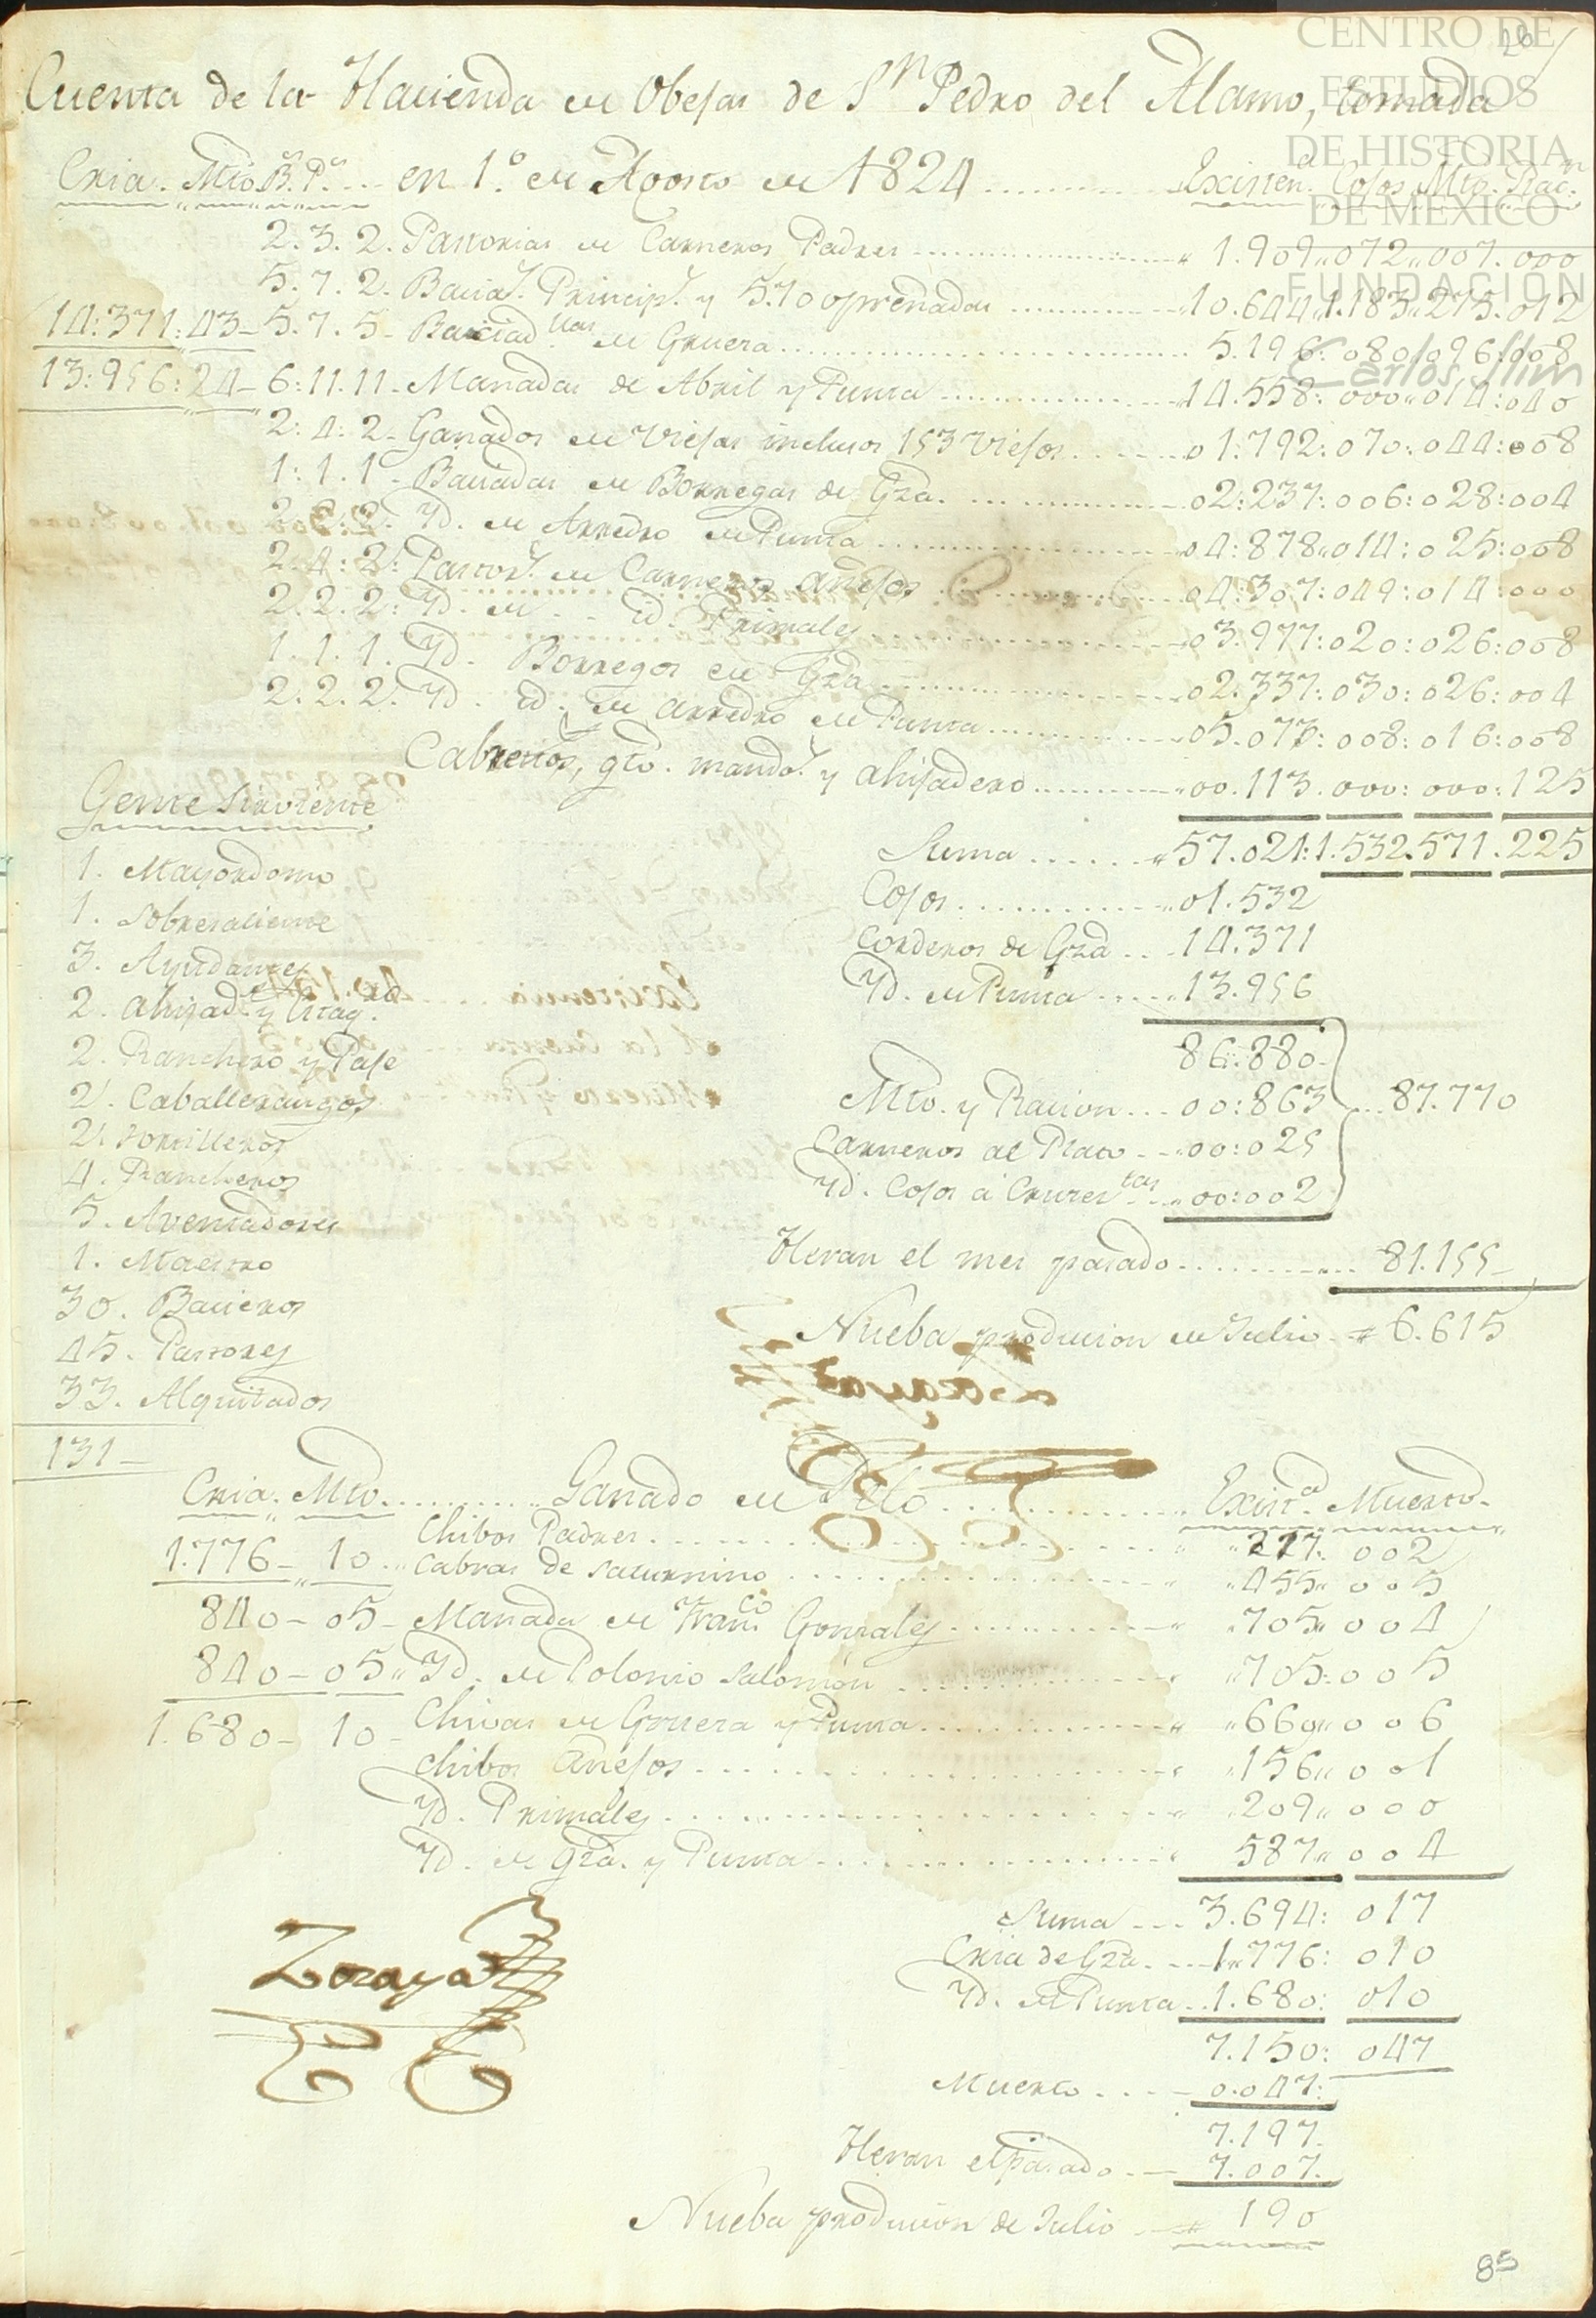 26
CENTRO DE
ESTUDIOS
DE HISTORIA
DE MÉXICO
FUNDACIÓN
Carlos Slim
Cuenta de la Hacienda de Obejas de Sn. Pedro del Alamo, tomada
Cria. Mto. Bs. Ps. ... en 1.º de Agosto de 1824 ... Existena. Cojos. Mto. Racn.
2. 3. 2. Pastorias de Carneros Padres ... 1.909 " 072 " 007. 000
5. 7. 2. Bacias. Princips. y 5.70 opreñadas ... 10.644 " 1.183 " 275. 012
14:371:43 - 5. 7. 5 - Baciad. de Gruera ... 5.196: 080: 096: 008
13:956:24 - 6:11.11 - Manadas de Abril y Punta ... 14.558: 000 " 014: 040
2: 4: 2 - Ganados de Viejas inclusos 153 Viejos ... 01:792: 070: 044: 008
1: 1. 1 - Baciadas de Borregas de Gza. ... 02:237: 006: 028: 004
2. 2: 2. Yd. de Arredro de Punta ... 04:878 " 014: 025: 008
2: 4: 2: Pastors. de Carneros añejos ... 04:307: 049: 014: 000
2. 2. 2: Yd. de id. Primales ... 03.977: 020: 026: 008
1. 1. 1. Yd. Borregos de Gza ... 02.337: 030: 026: 004
2. 2. 2. Yd. id. de arredro de Punta ... 05.077: 008: 016: 008
Cabrestos, gto. mandos. y ahijadero ... 00.113. 000: 000: 125
Suma ... 57.021: 1.532. 571. 225
Cojos ... 01.532
Corderos de Gza ... 14.371
Yd. de Punta ... 13.956
86:880
Mto. y Racion ... 00:863 ... 87.770
Carneros al Plato ... 00:025
Yd. Cojos á ... 00:002
Heran el mes pasado ... 81.155
Nueba producion de Julio # 6.615
Gente Sirviente
1. Mayordomo
1. Sobresaliente
3. Ayudantes
2. Ahijads. y
2. Ranchero y Paje
2. Caballerangos
2. Tortilleros
4. Rancheros
5. Aventadores
1. Maestro
30. Bacieros
45. Pastores
33. Alquitados
131
Cria. Mto. ... Ganado de Pelo ... Existca. Muerto.
Chibos Padres ... 217: 002
1.776 - 10 - Cabras de Saturnino ... 455 " 005
840 - 05 - Manada de Franco. Gonzales ... 705 " 004
840 - 05 " Yd. de Polonio Salomón ... 705: 005
1.680 - 10 - Chivas de Gruera y Punta ... 660 " 006
Chibos añejos ... 156 " 001
Yd. Primales ... 209 " 000
Yd. de Gza. y Punta ... 587 " 004
Suma ... 3.694: 017
Cria de Gza. ... 1.776: 010
Yd. de Punta ... 1.680: 010
7.150: 047
Muerto ... 0.047:
7.197.
Heran el pasado ... 7.007.
Nueba producion de Julio # 190
Zoraya
85